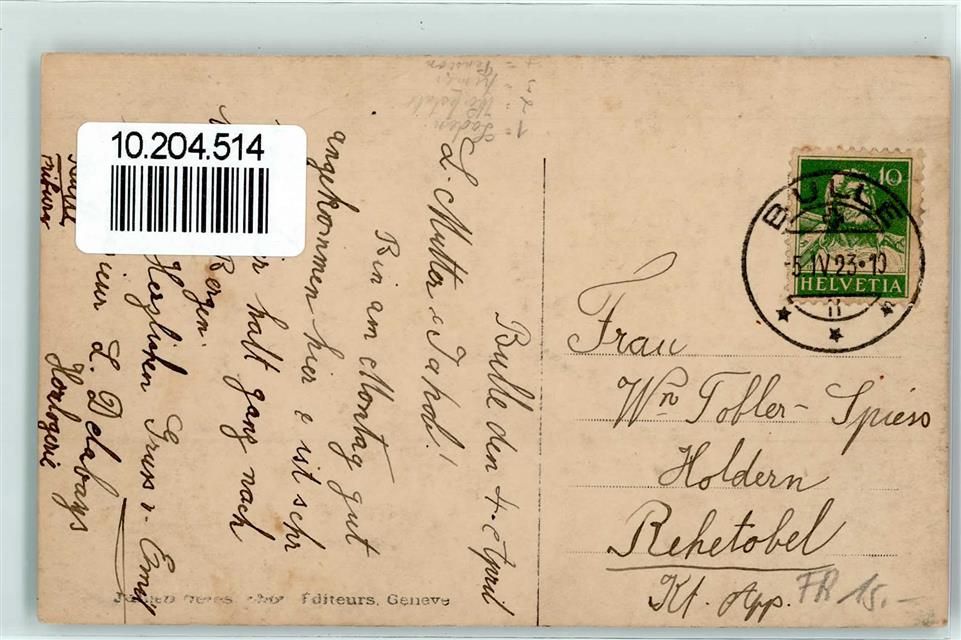 1 = Laden
10.204.514
Bulle den 4. April
L. Mutter & Jakob!
Bin am Montag gut
angekommen hier & ist sehr
halt ganz nach
Bergen.
Herzlichen Gruss v. Emil
L. Delabays
Horlogerie
Bulle
Fribourg
BULLE
5.IV.23-10
10
HELVETIA
Frau
Wn Tobler-Spiess
Holdern
Rehetobel
Kt. App.
FR 15.-
Editeurs, Geneve